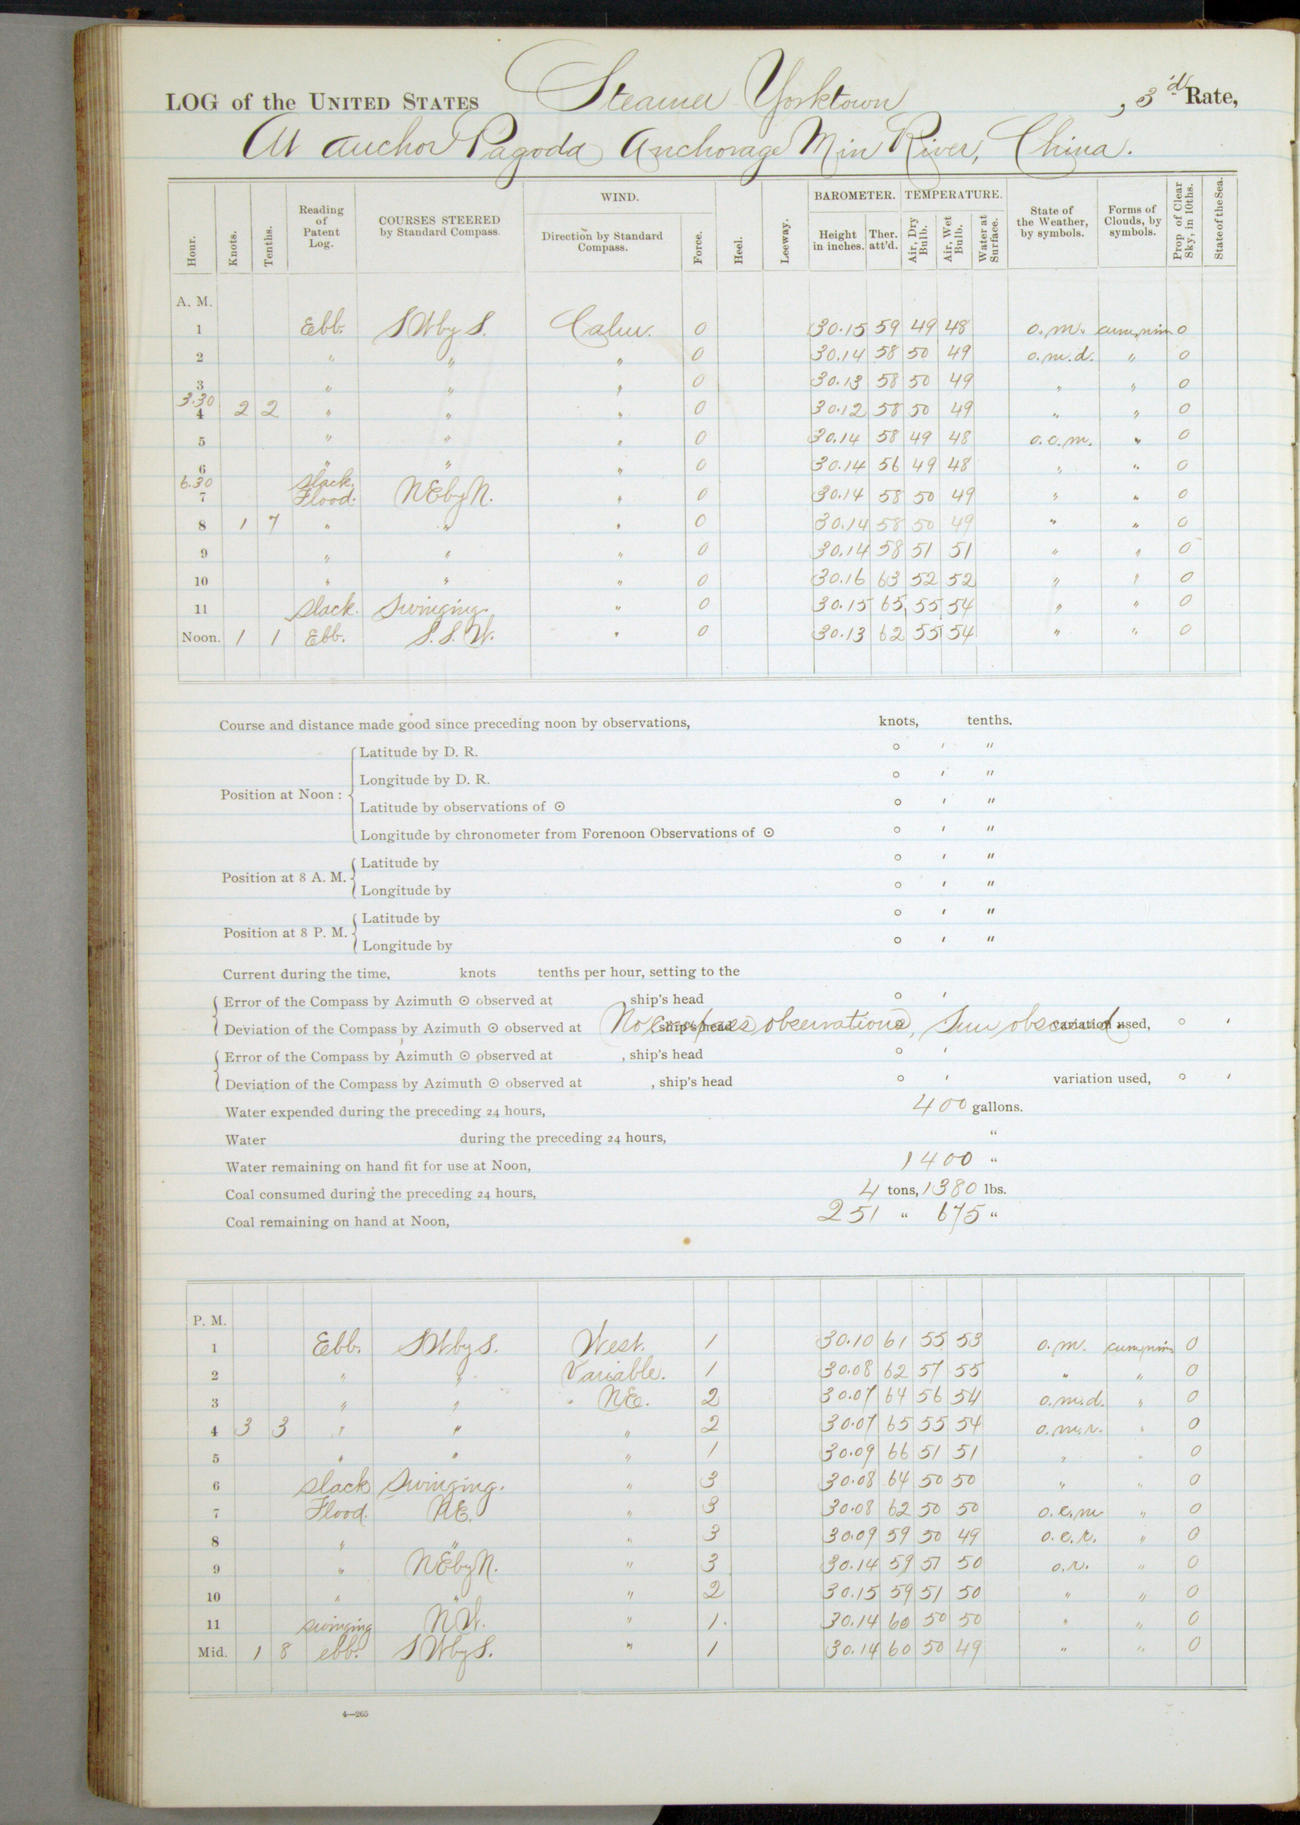 LOG of the UNITED STATES Steamer Yorktown, 3d Rate,
At anchor Pagoda Anchorage Min River, China.
Hour. Knots. Tenths. Reading of Patent Log. COURSES STEERED by Standard Compass. WIND. Direction by Standard Compass. Force. Heel. Leeway. BAROMETER. Height in inches. Ther. att'd. TEMPERATURE. Air, Dry Bulb. Air, Wet Bulb. Water at Surface. State of the Weather, by symbols. Forms of Clouds, by symbols. Prop of Clear Sky, in 10ths. State of the Sea.
A. M.
1 Ebb. SW by S. Calm. 0 30.15 59 49 48 o.m. cum.nim 0
2 " " " 0 30.14 58 50 49 o.m.d. " 0
3 " " " 0 30.13 58 50 49 " " 0
3.30
4 2 2 " " " 0 30.12 58 50 49 " " 0
5 " " " 0 30.14 58 49 48 o.c.m. " 0
6 " " " 0 30.14 56 49 48 " " 0
6.30 slack.
7 Flood. NE by N. " 0 30.14 58 50 49 " " 0
8 1 7 " " " 0 30.14 58 50 49 " " 0
9 " " " 0 30.14 58 51 51 " " 0
10 " " " 0 30.16 63 52 52 " " 0
11 slack. Swinging. " 0 30.15 65 55 54 " " 0
Noon. 1 1 Ebb. S.S.W. " 0 30.13 62 55 54 " " 0
Course and distance made good since preceding noon by observations, knots, tenths.
Position at Noon : Latitude by D. R. ° ′ ″
Longitude by D. R. ° ′ ″
Latitude by observations of ⊙ ° ′ ″
Longitude by chronometer from Forenoon Observations of ⊙ ° ′ ″
Position at 8 A. M. Latitude by ° ′ ″
Longitude by ° ′ ″
Position at 8 P. M. Latitude by ° ′ ″
Longitude by ° ′ ″
Current during the time, knots tenths per hour, setting to the
Error of the Compass by Azimuth ⊙ observed at , ship's head ° ′
Deviation of the Compass by Azimuth ⊙ observed at , ship's head variation used, ° ′
No compass observations, Sun obscured.
Error of the Compass by Azimuth ⊙ observed at , ship's head ° ′
Deviation of the Compass by Azimuth ⊙ observed at , ship's head ° ′ variation used, ° ′
Water expended during the preceding 24 hours, 400 gallons.
Water during the preceding 24 hours, "
Water remaining on hand fit for use at Noon, 1400 "
Coal consumed during the preceding 24 hours, 4 tons, 1380 lbs.
Coal remaining on hand at Noon, 251 " 675 "
P. M.
1 Ebb. SW by S. West. 1 30.10 61 55 53 o.m. cum.nim 0
2 " " Variable. 1 30.08 62 57 55 " " 0
3 " " " NE. 2 30.07 64 56 54 o.m.d. " 0
4 3 3 " " " 2 30.07 65 55 54 o.m.r. " 0
5 " " " 1 30.09 66 51 51 " " 0
6 slack Swinging. " 3 30.08 64 50 50 " " 0
7 Flood. NE. " 3 30.08 62 50 50 o.c.m " 0
8 " " " 3 30.09 59 50 49 o.c.r. " 0
9 " NE by N. " 3 30.14 59 51 50 o.r. " 0
10 " " " 2 30.15 59 51 50 " " 0
11 swinging N.W. " 1. 30.14 60 50 50 " " 0
Mid. 1 8 ebb. SW by S. " 1 30.14 60 50 49 " " 0
4—265